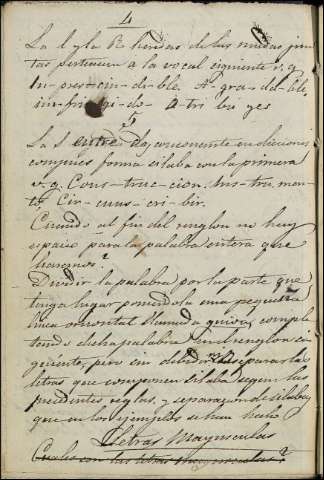 4
La l y la R heridas de las mudas jun
tas pertenecen a la vocal siguiente v. g
In-pres-cin-di-ble. A-gra-da-ble,
in-frin-gi-do A-tri bu yes
5
La S entre dos consonante en diciones
compues forma silaba con la primera
v. g. Cons-truc-cion. Ins-tru, men-
to, Cir-cuns-cri-bir.
Cuando al fin del renglon no hay
espacio para la palabra entera que
haremos?
Dividir la palabra por la parte que
tenga lugar poniendola una pequeña
linea orisontal llamada guion, comple
tando dicha palabra en el renglon si
guiente, pero sin deber separar las
letras que componen silaba segun las
presidentes reglas, y separacion de silabas
que en los ejemplos se han hecho
Letras Mayusculas
Cuales son las letras mayusculas?